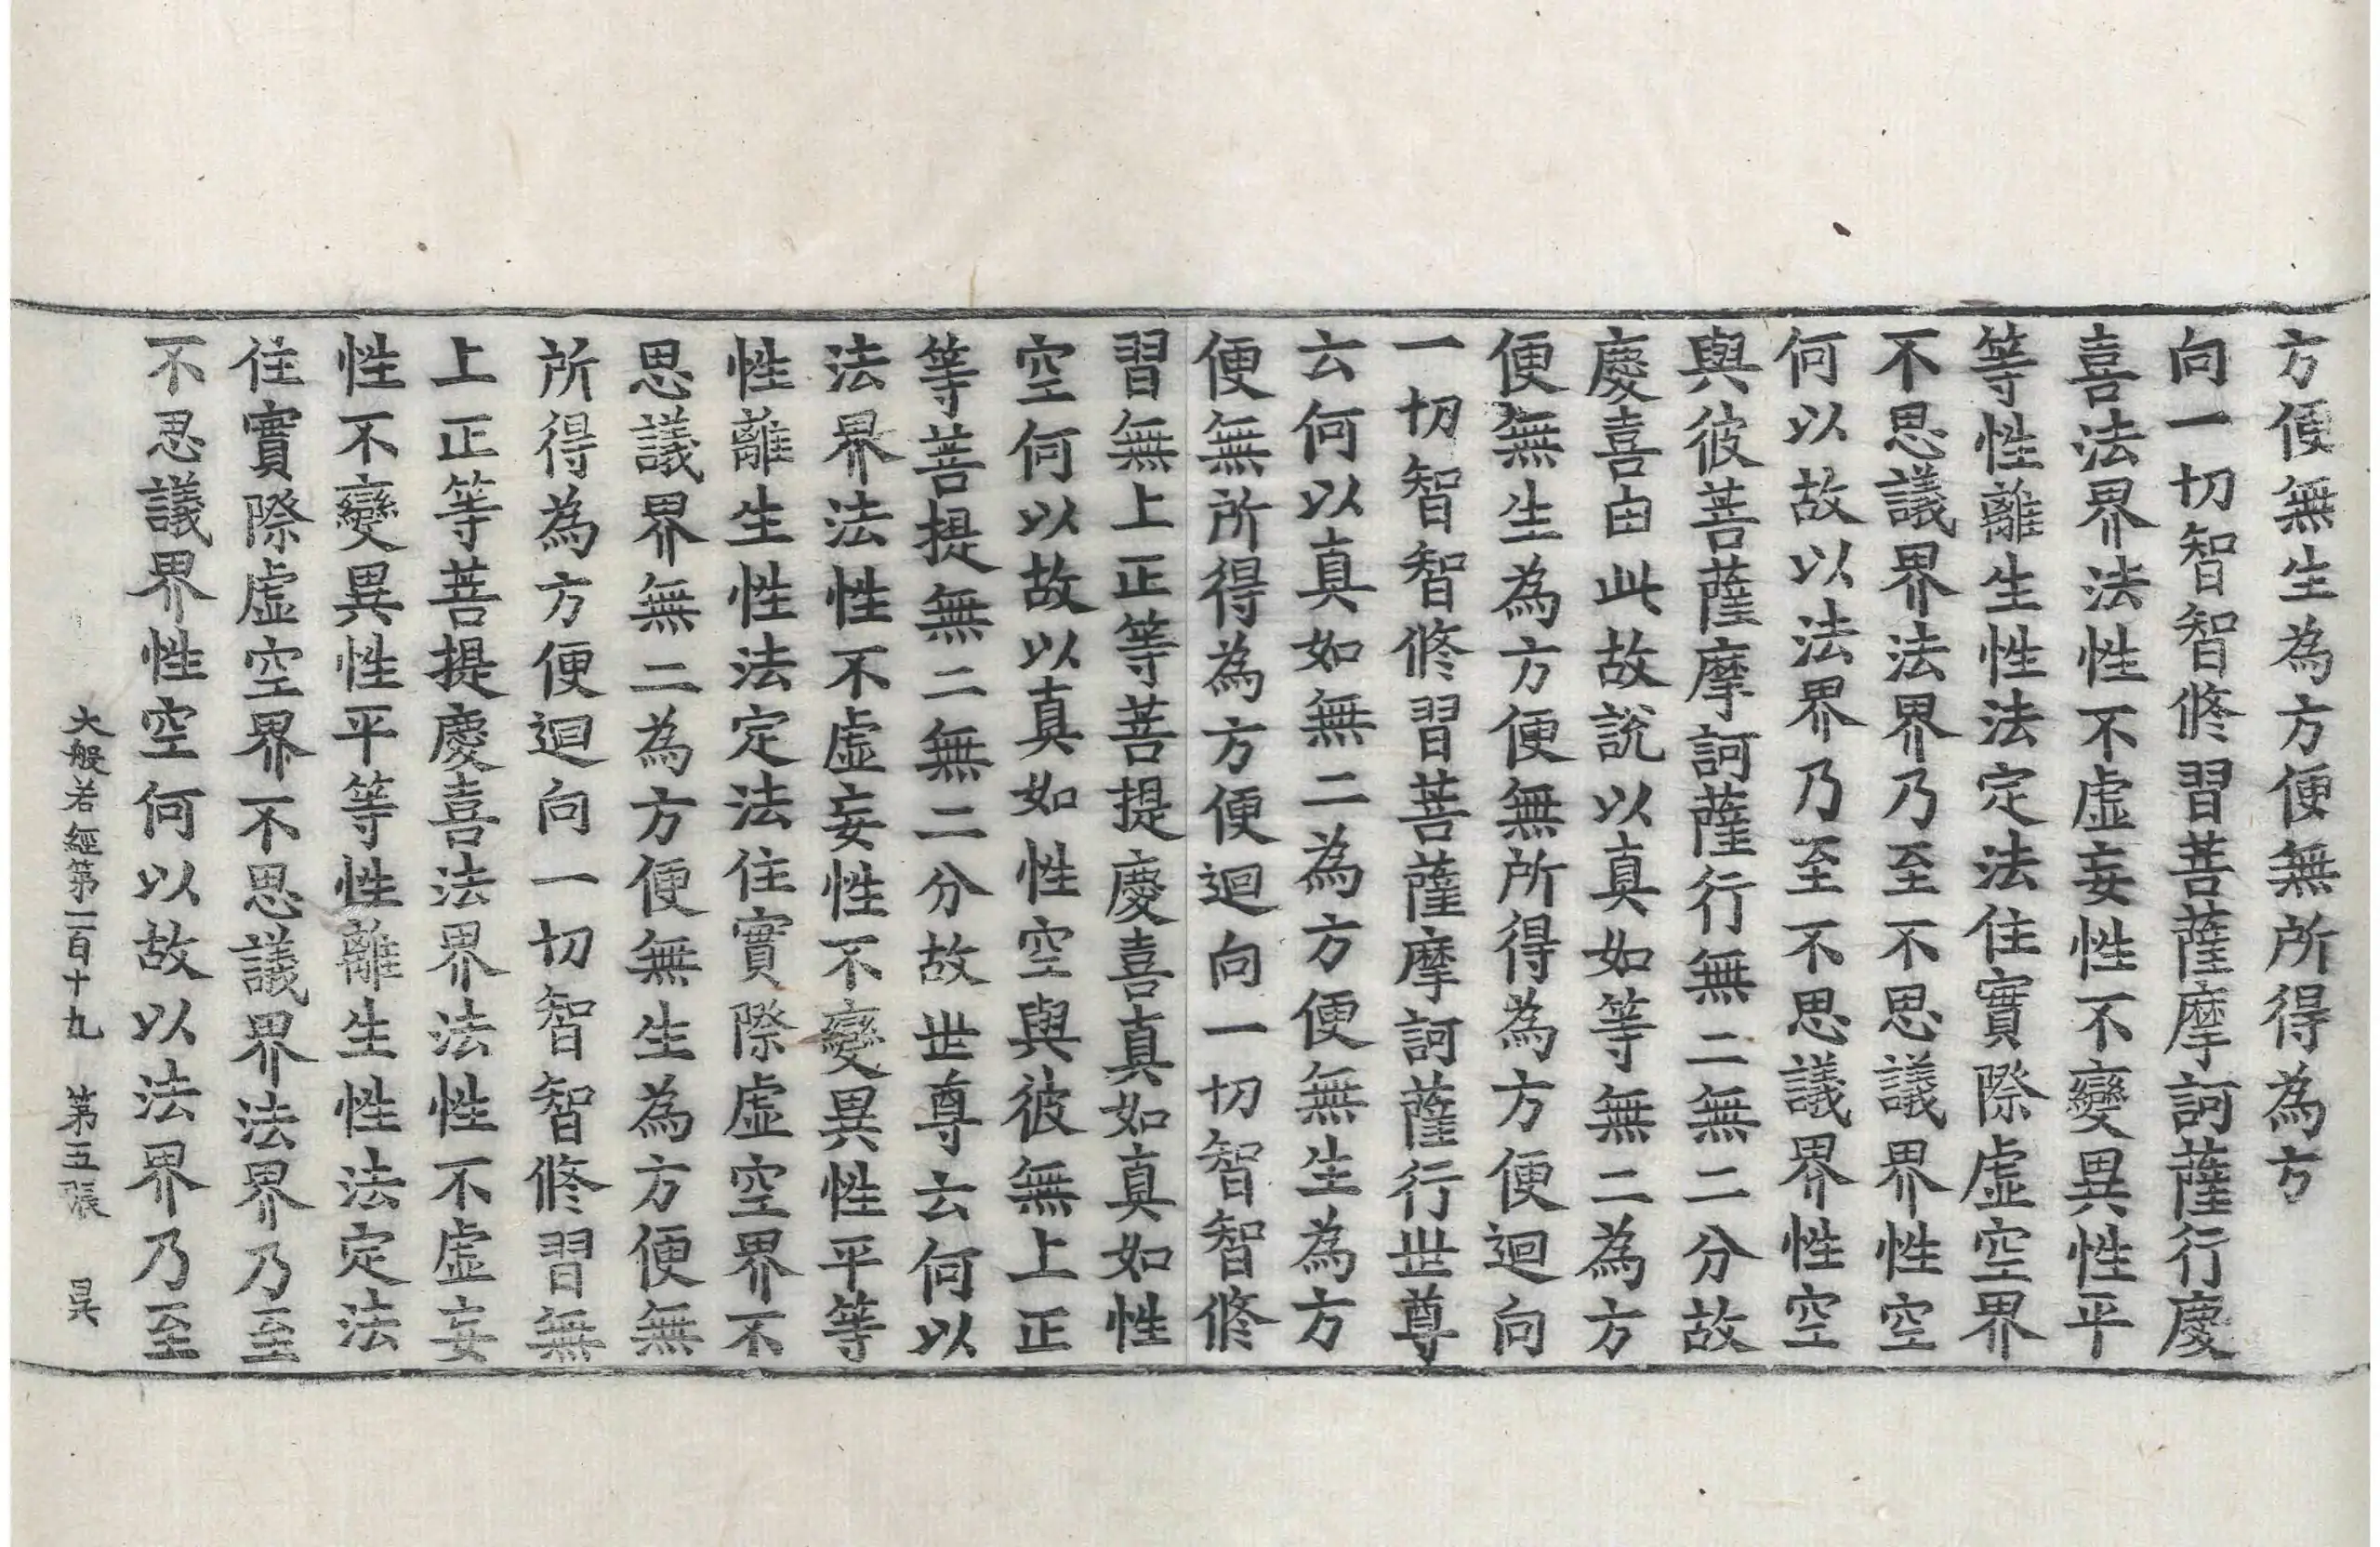 方便無生為方便無所得為方
向一切智智修習菩薩摩訶薩行慶
喜法界法性不虛妄性不變異性平
等性離生性法定法住實際虛空界
不思議界法界乃至不思議界性空
何以故以法界乃至不思議界性空
與彼菩薩摩訶薩行無二無二分故
慶喜由此故說以真如等無二為方
便無生為方便無所得為方便迴向
一切智智修習菩薩摩訶薩行世尊
云何以真如無二為方便無生為方
便無所得為方便迴向一切智智修
習無上正等菩提慶喜真如真如性
空何以故以真如性空與彼無上正
等菩提無二無二分故世尊云何以
法界法性不虛妄性不變異性平等
性離生性法定法住實際虛空界不
思議界無二為方便無生為方便無
所得為方便迴向一切智智修習無
上正等菩提慶喜法界法性不虛妄
性不變異性平等性離生性法定法
住實際虛空界不思議界法界乃至
不思議界性空何以故以法界乃至
大般若經第一百十九 第五張 昃